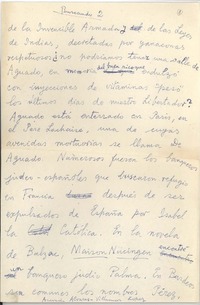 2
de la Invencible Armada, de las Leyes
de Indias, decretadas por ganaderos
¿no podríamos tener una calle de
Aguado, en que endulzó
con inyecciones de vitaminas
los últimos días de nuestro Libertador?
Aguado está enterrado en París, en
el Père Lachaise, una de cuyas
avenidas mortuorias se llama De
Aguado. Numerosos fueron los banqueros
judeo-españoles que buscaron refugio
en Francia después de ser
expulsados de España por Isabel
la Católica. En la novela
de Balzac, Maison Nucingen
banquero judío Palma. En Burdeos
son comunes los nombres Pérez,